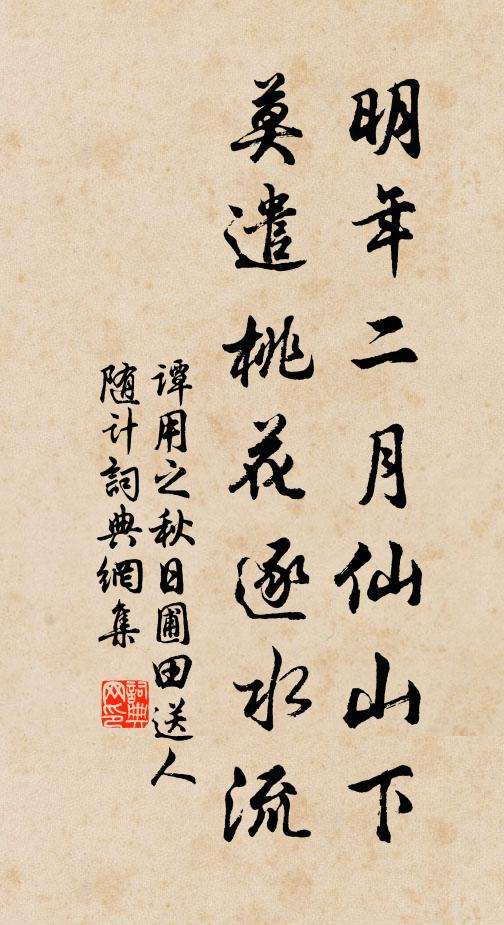 明年二月仙山下
莫遣桃花逐水流
谭用之秋日圃田送人
随计詞典網集
詞典
网印